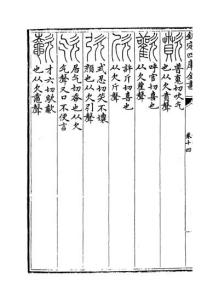 欽定四庫全書
卷十四
普魂切吹气
也从欠賁聲
呼官切喜也
从欠雚聲
許斤切喜也
从欠斤聲
式忍切笑不壞
顏也从欠引聲
居气切也从欠
气聲又口不便言
才六切歍
也从欠鼀聲